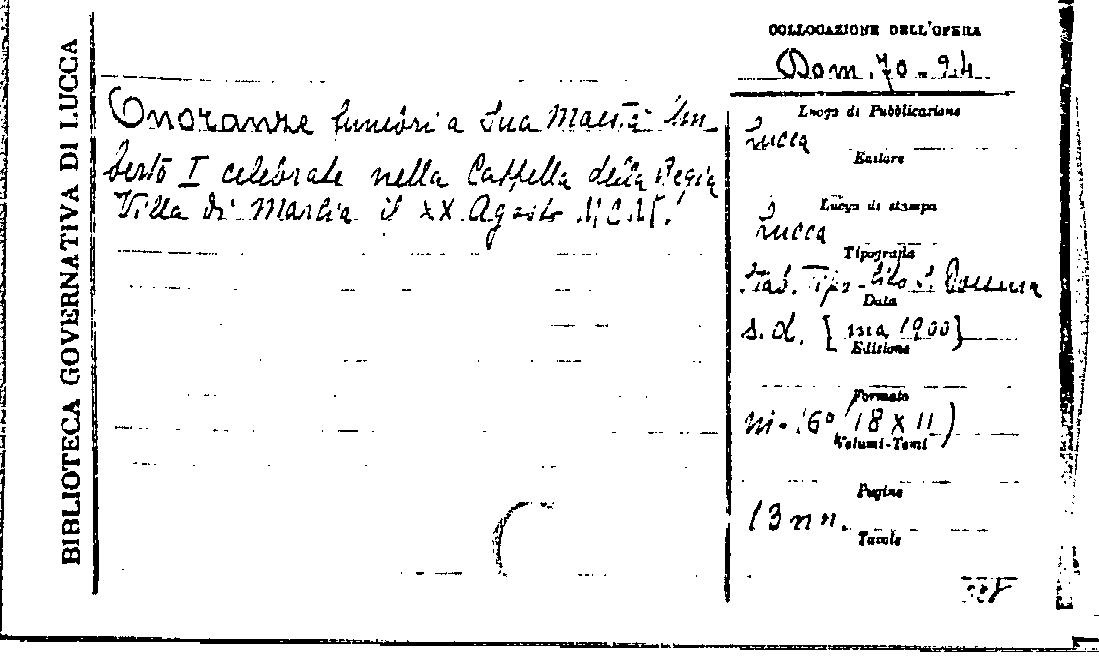 BIBLIOTECA GOVERNATIVA DI LUCCA
COLLOCAZIONE DELL'OPERA
Dom. 70. 24
Onoranze funebri a Sua Maestà Um-
berto I celebrate nella Cappella della Regia
Villa di Marlia il XX Agosto MCM.
Luogo di Pubblicazione
Lucca
Editore
Luogo di stampa
Lucca
Tipografia
Stab. Tipo-lito
Data
s. d. [ma 1900]
Edizione
Formato
in-16° (18 x 11)
Volumi-Tomi
Pagine
13 nn.
Tavole